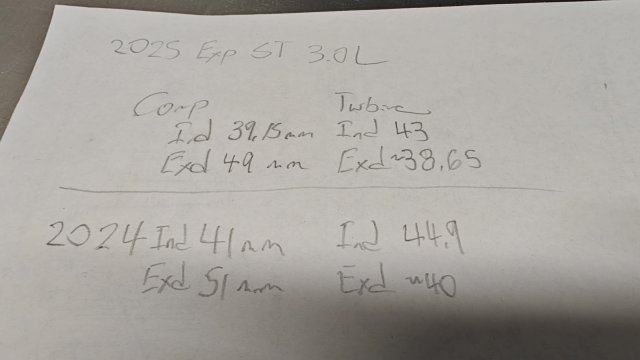 2025 Exp ST 3.0L
Comp Turbine
Ind 39.15mm Ind 43
Exd 49 mm Exd ~38.65
2024 Ind 41mm Ind 44.9
Exd 51mm Exd ~40